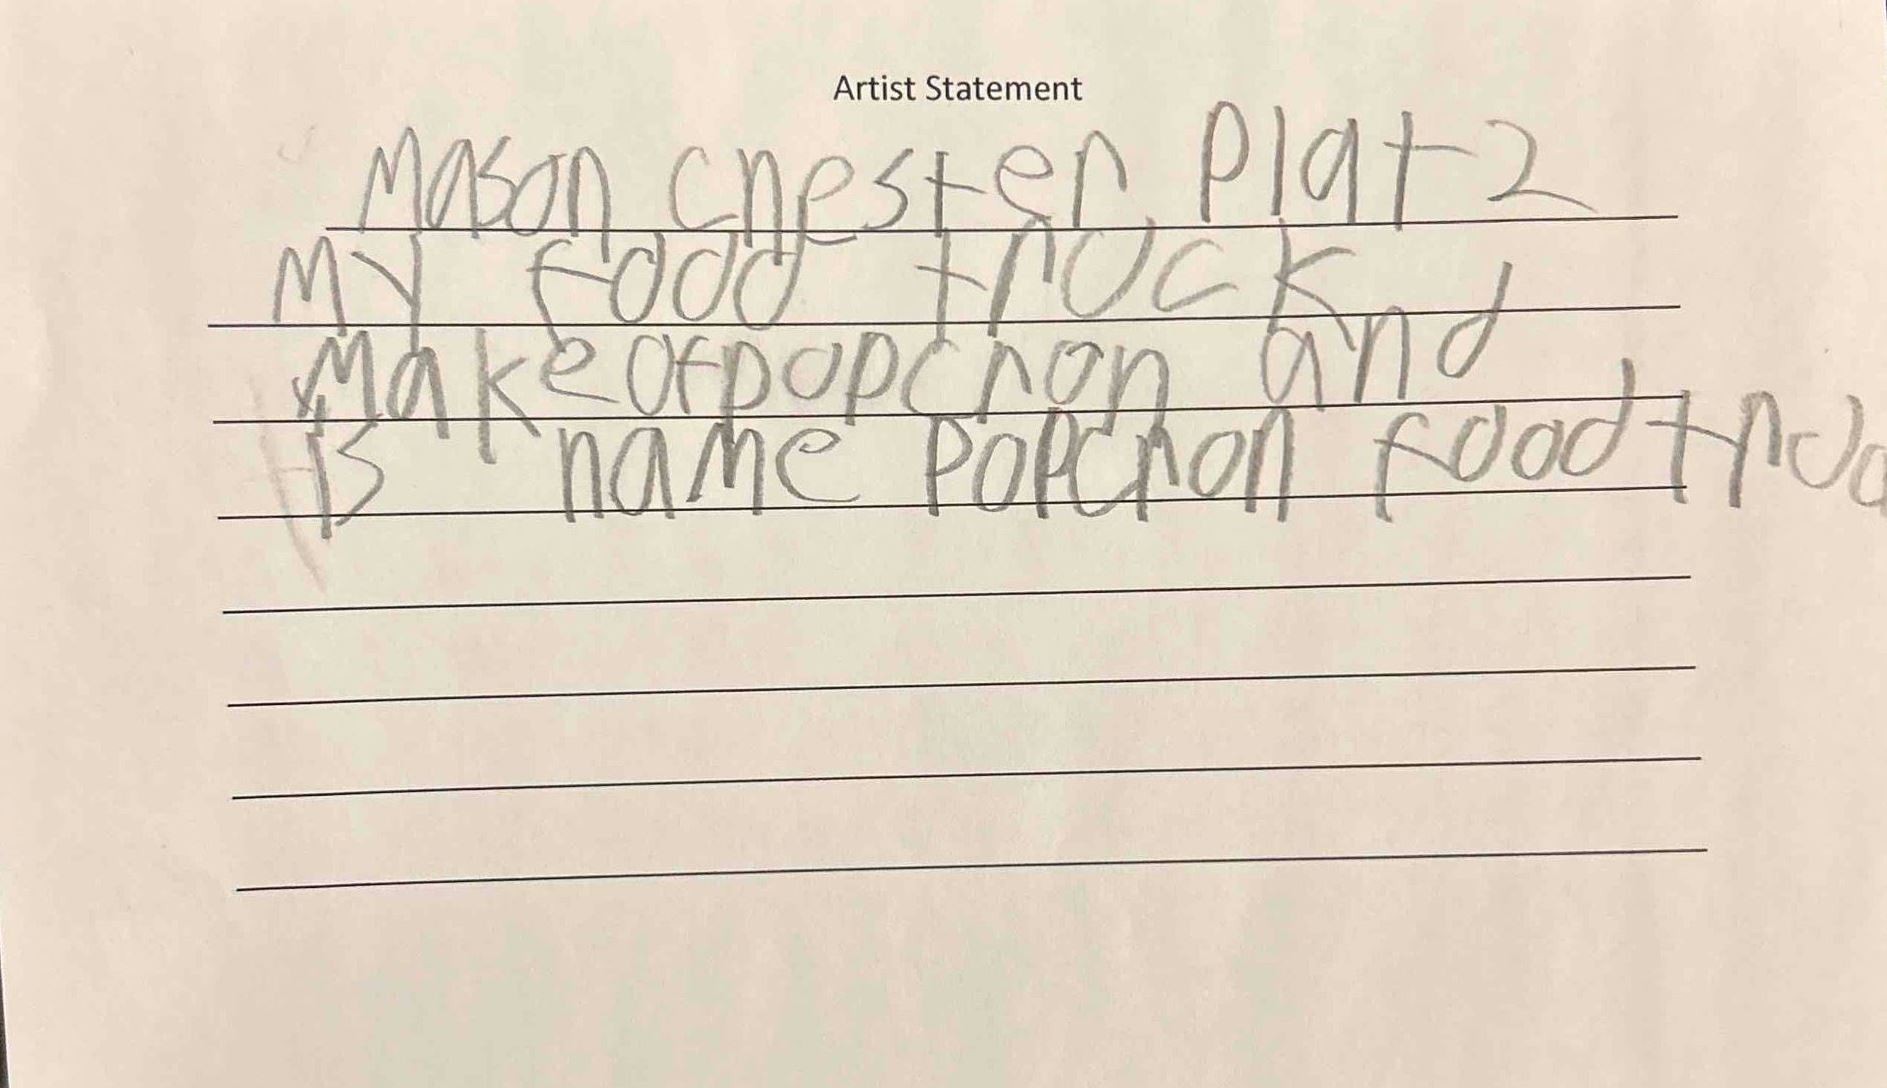 Artist Statement
Mason Chester Platz
My food truck
make of popcron and
is name Popcron food truc